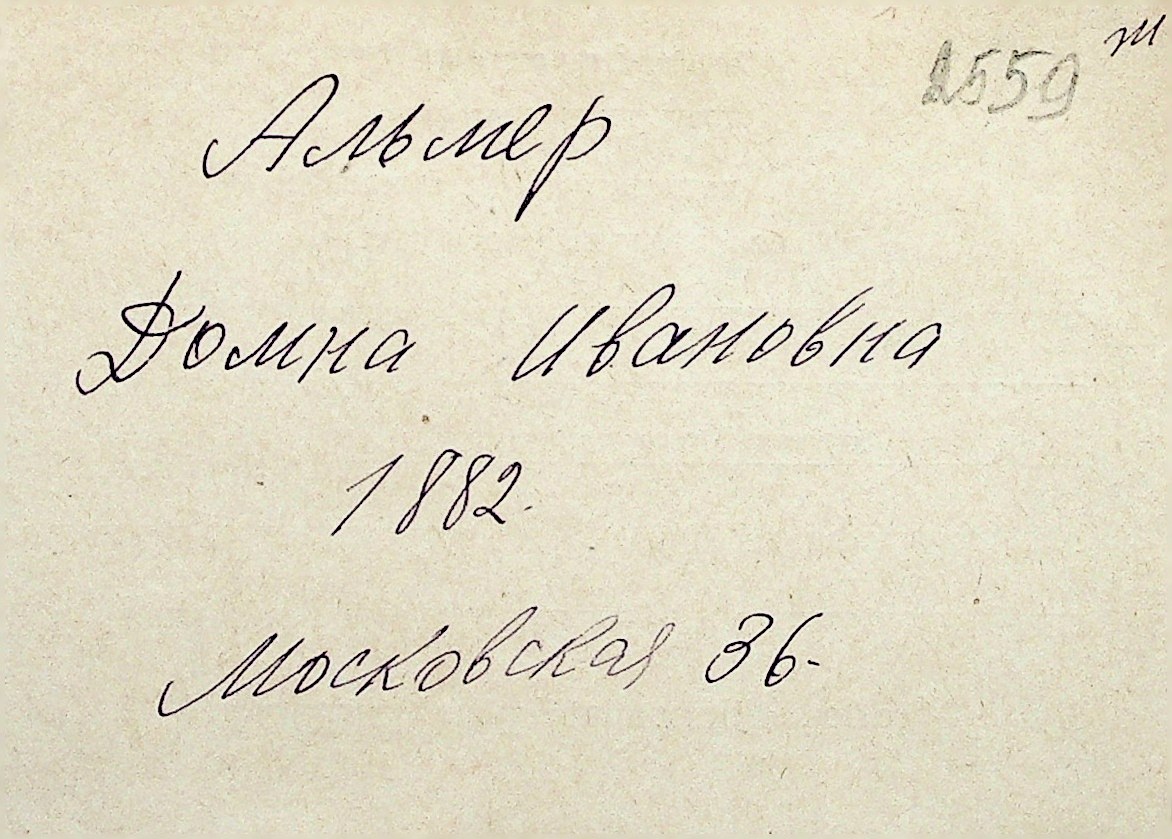 2559
Альмер
Домна Ивановна
1882.
Московская 36-